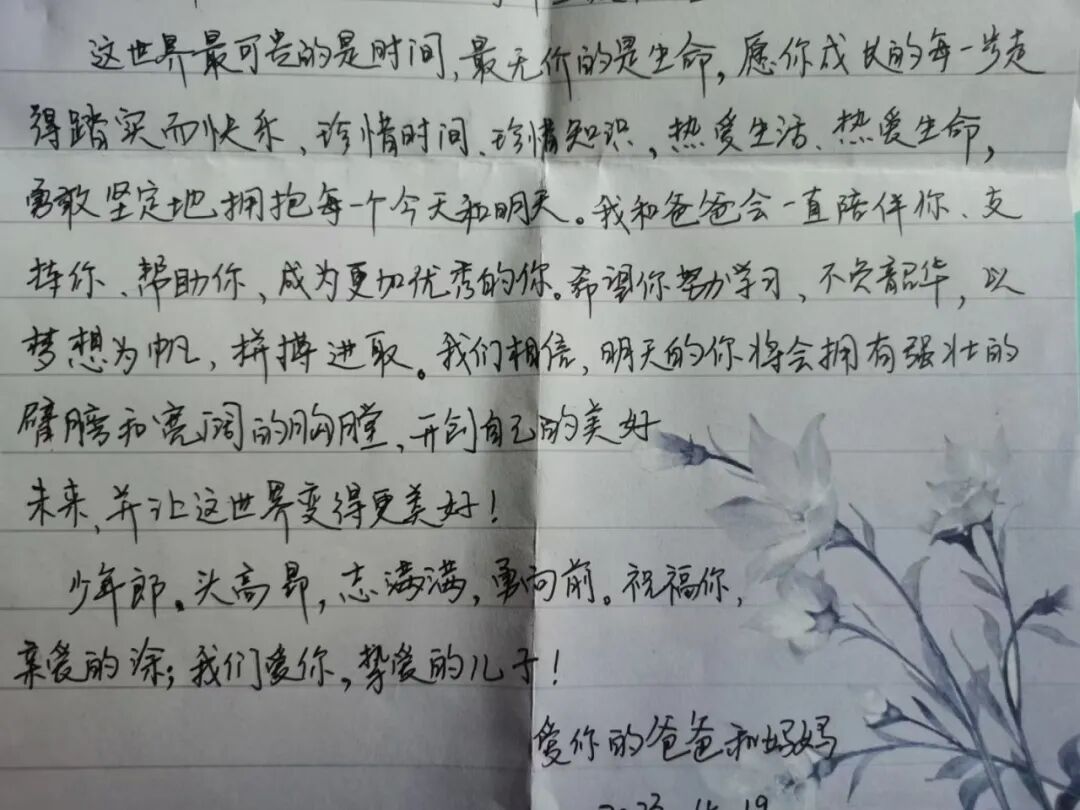 这世界最可贵的是时间,最无价的是生命,愿你成长的每一步走
得踏实而快乐、珍惜时间、珍惜知识,热爱生活、热爱生命,
勇敢坚定地拥抱每一个今天和明天。我和爸爸会一直陪伴你、支
持你、帮助你、成为更加优秀的你。希望你努力学习、不负韶华,以
梦想为帆,拼搏进取。我们相信,明天的你将会拥有强壮的
臂膀和宽阔的胸膛,开创自己的美好
未来,并让这世界变得更美好!
少年郎。头高昂,志满满,勇向前。祝福你,
亲爱的涂;我们爱你,挚爱的儿子!
爱你的爸爸和妈妈